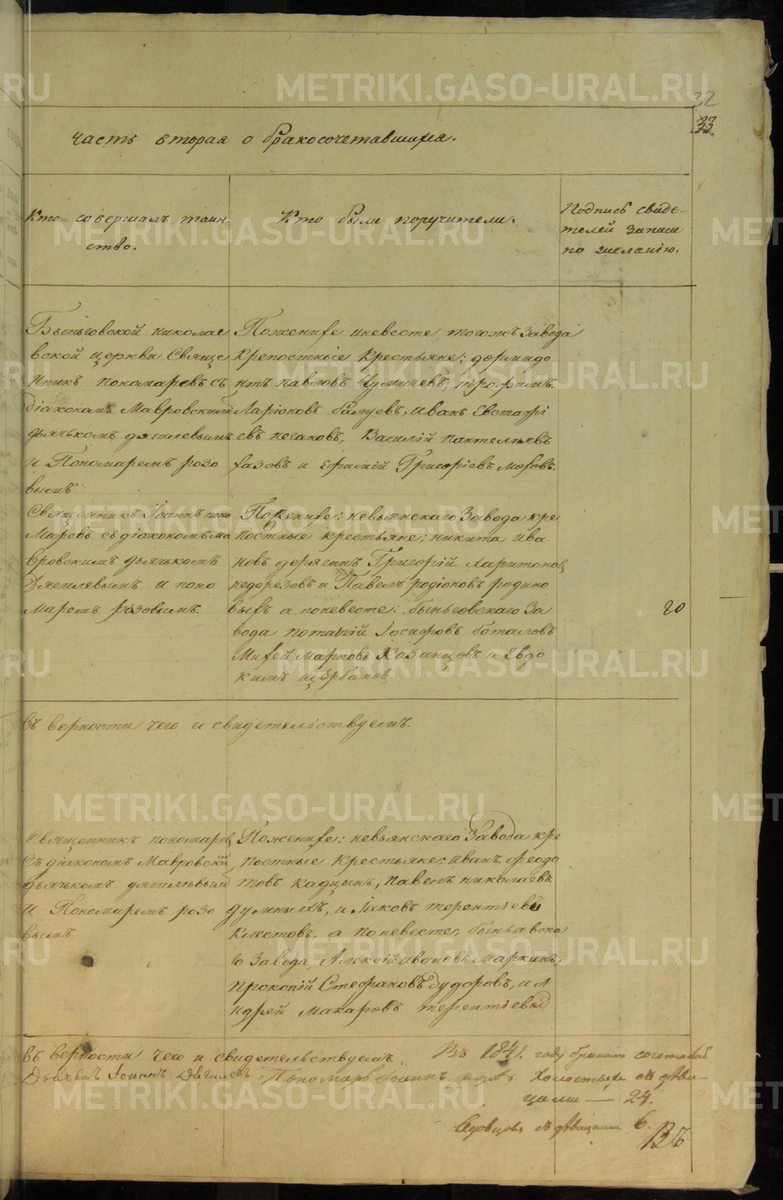 32
33
часть вторая о бракосочетавшихся.
Кто совершалъ таин-
ство.
Кто были поручители.
Подпись свиде-
телей записи
по желанію.
Быньговской николае
вской церкви Свяще
нникъ пономаревъ съ
діакономъ Мавровскимъ
дьячькомъ дягилевымъ
и Пономаремъ розо
вымъ
По женихе и невесте тогожъ завода
крепостные крестьяне:
нтъ павловъ трофимъ
Ларіоновъ иванъ Евстафі
евъ Василій пантелеевъ
и Ефимій Григоріевъ
Священникъ Іоаннъ поно
маровъ съ діакономъ ма
вровскимъ дьячькомъ
Дягилевымъ и поно
маремъ розовымъ.
По женихе: невьянскаго завода кре
постные крестьяне: никита ива
новъ Григорій Харитоновъ
недорезовъ и Павелъ родіоновъ родіно
выхъ а по невесте: быньговскаго за
вода потапій Іосифовъ боталовъ
Марковъ Казанцовъ и Евдо
кимъ щербаковъ
20
въ верности чего и свидетельствуемъ.
Священникъ пономаревъ
Съ діакономъ Мавровски
дьячкомъ дягилевым
И Пономаремъ розо
вымъ.
По женихе: невьянскаго завода кре
постные крестьяне: иванъ федо
товъ кадцынъ, павелъ николаевъ
думныхъ, и Іаковъ терентьевъ
клестовъ, а по невесте: быньгавска
го завода Алексей ивановъ Маркинъ,
прокопій Стефановъ дудоровъ, и А
ндрей Макаровъ терентьевы
въ верности чего и свидетельствуемъ
Дьячекъ Іоаннъ Дягилевъ Пономарь Іоаннъ розовъ
Въ 1841. году бракомъ сочетаваɴо
Холостыхъ съ деви-
цами — 24.
Вдовцовъ съ девицами 6.